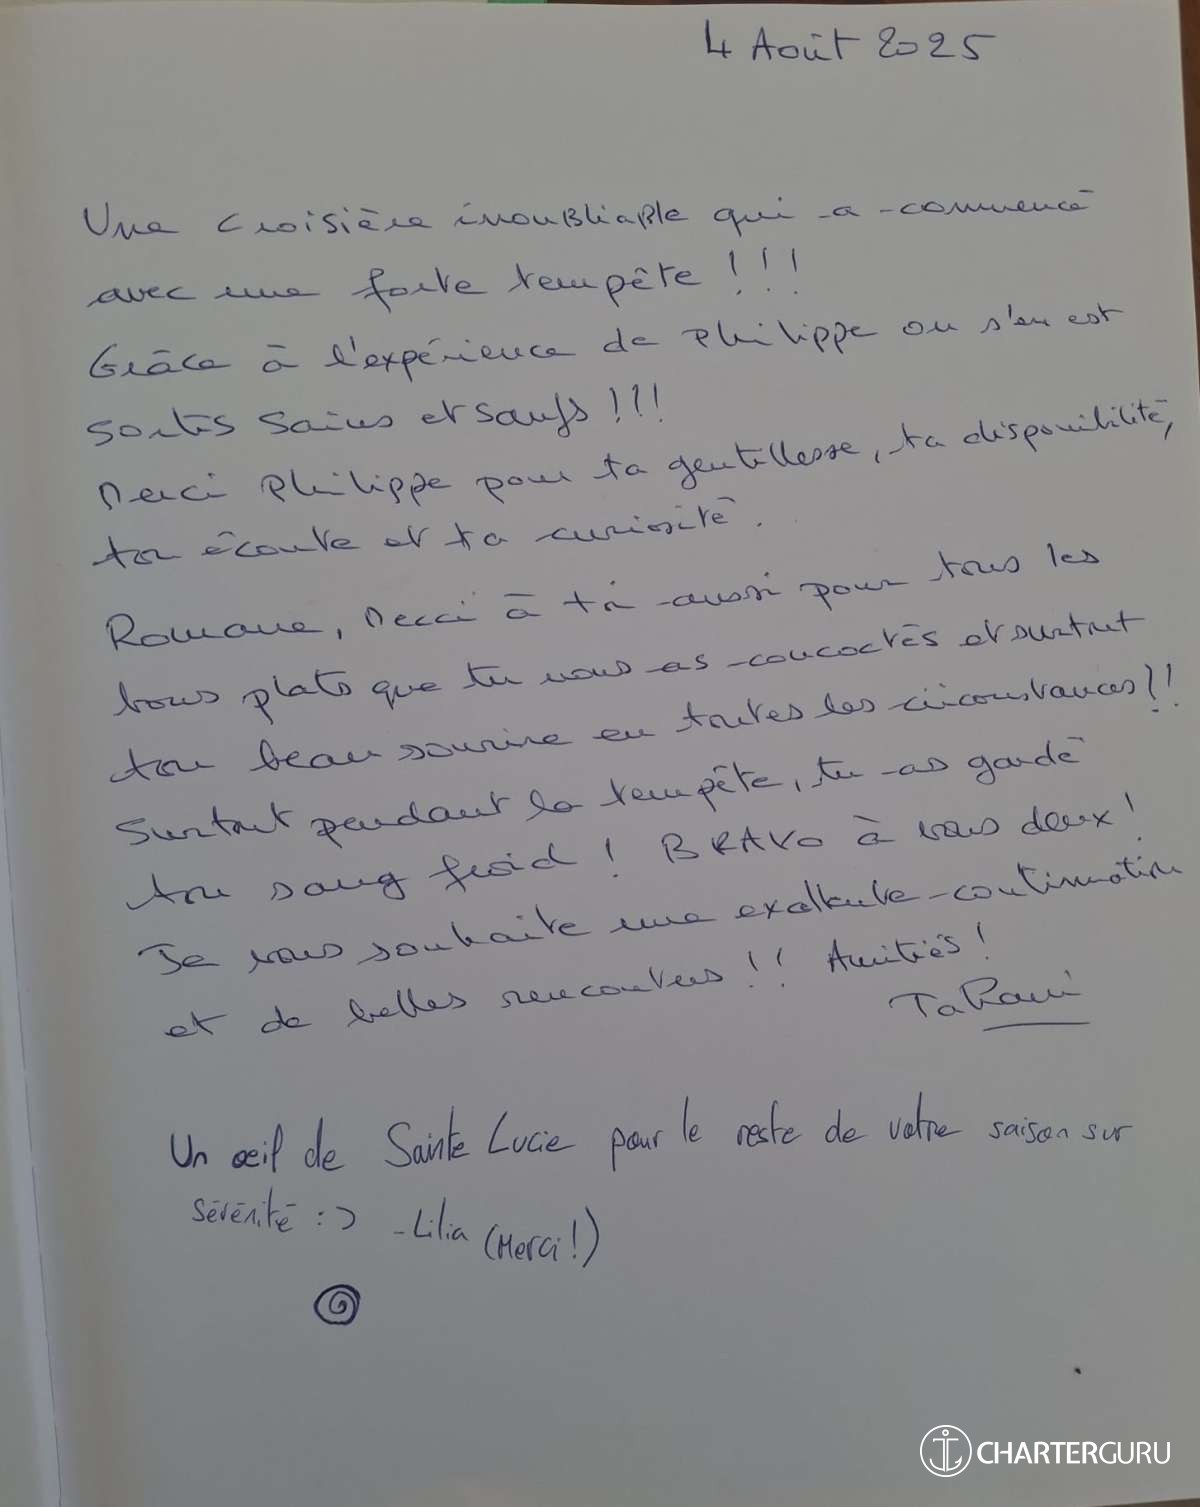 4 Août 2025
Une croisière inoubliable qui a commencé
avec une forte tempête !!!
Grâce à l'expérience de Philippe on s'en est
sortis sains et saufs !!!
Merci Philippe pour ta gentillesse, ta disponibilité,
ton écoute et ta curiosité.
Romane, Merci à toi aussi pour tous les
bons plats que tu nous as concoctés et surtout
ton beau sourire en toutes les circonstances !!
Surtout pendant la tempête, tu as gardé
ton sang froid ! BRAVO à vous deux !
Je vous souhaite une excellente continuation
et de belles rencontres !! Amitiés !
Un œil de Sainte Lucie pour le reste de votre saison sur
sérénité :) - Lilia (Merci !)
CHARTERGURU